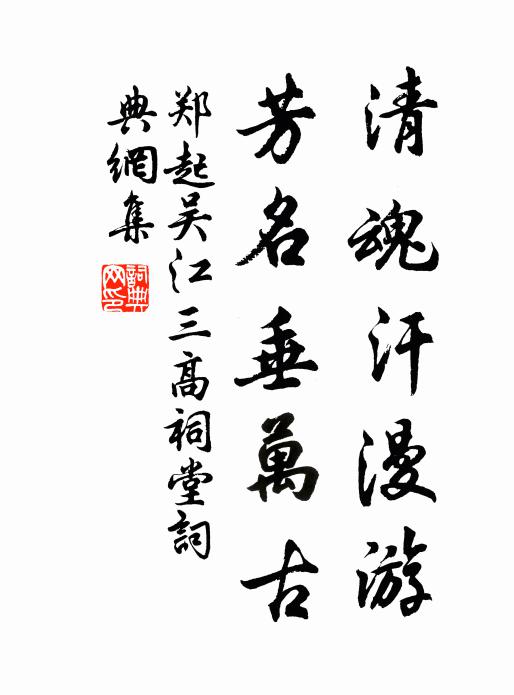 清魂汗漫游
芳名垂萬古
郑起吴江三高祠堂詞
典網集
詞典
网印